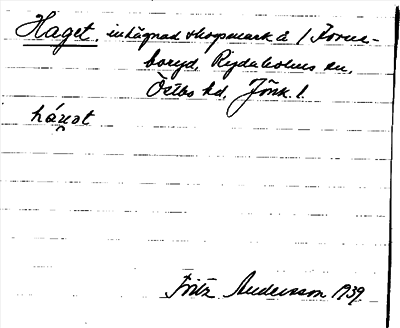 Haget, inhägnad skogsmark å / Forns-
boryd, Rydaholms sn,
Östbo hd, Jönk. l.
háu̯ot
Fritz Andersson 1939